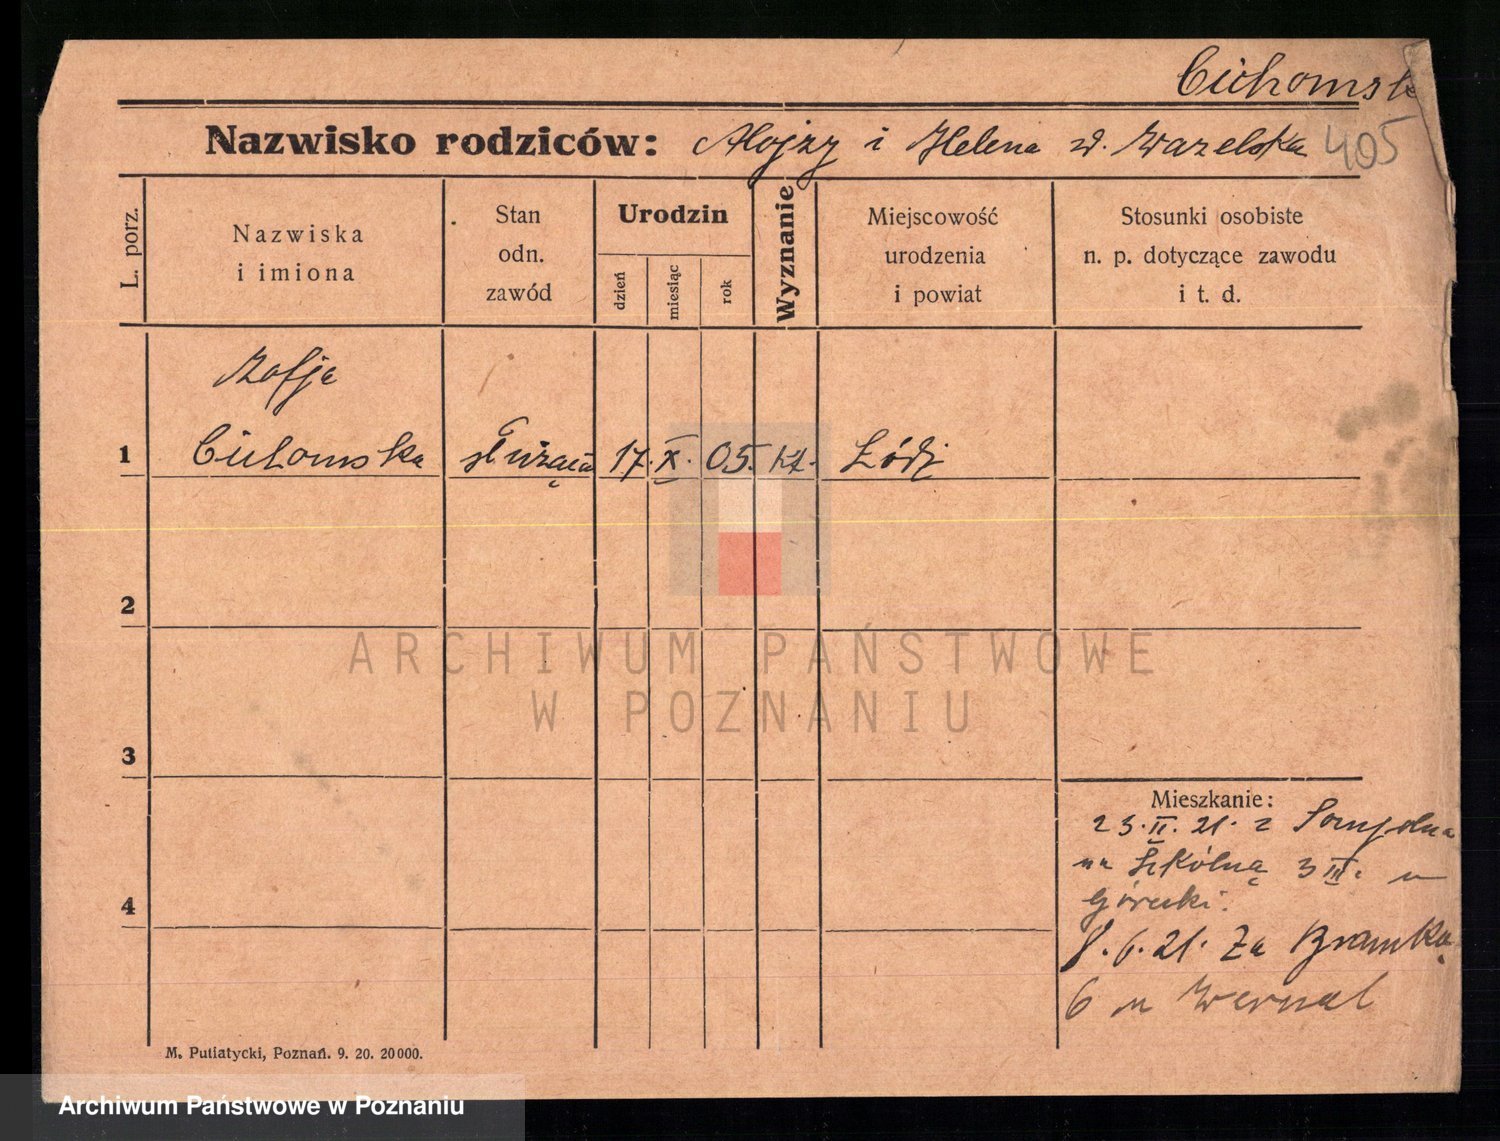 Cichomsk
Nazwisko rodziców: Alojzy i Helena z d. Wazelska 405
L. porz.
Nazwiska
i imiona
Stan
odn.
zawód
Urodzin
dzień
miesiąc
rok
Wyznanie
Miejscowość
urodzenia
i powiat
Stosunki osobiste
n. p. dotyczące zawodu
i t. d.
Zofja
1 Cichomska służąca 17. X. 05. kt. Łódź
2
ARCHIWUM PAŃSTWOWE
W POZNANIU
3
Mieszkanie:
23. II. 21. z Sompolna
na Szkólną 3 III. u
Górecki.
4
8. 6. 21. Za Bramką
6 u Wernal
M. Putiatycki, Poznań. 9. 20. 20000.
Archiwum Państwowe w Poznaniu